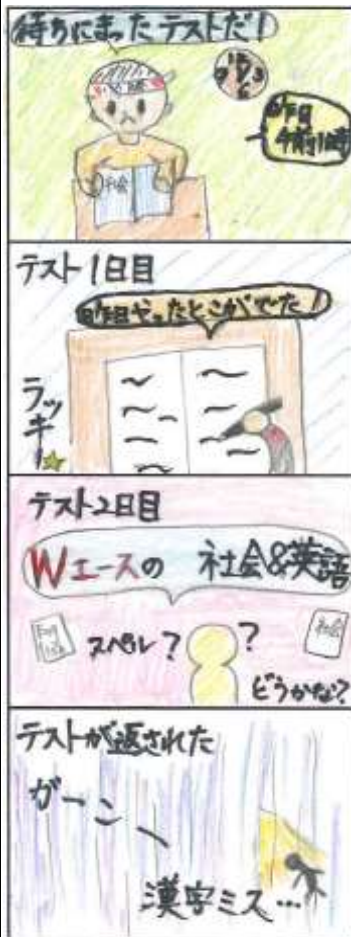 待ちにまったテストだ!
社会
昨日
午前1時
テスト1日目
昨日やったとこがでた!
ラッキー☆
テスト2日目
Wエースの 社会&英語
Eng
lish
スペル?
?
社会
どうかな?
テストが返された
ガーン
漢字ミス…